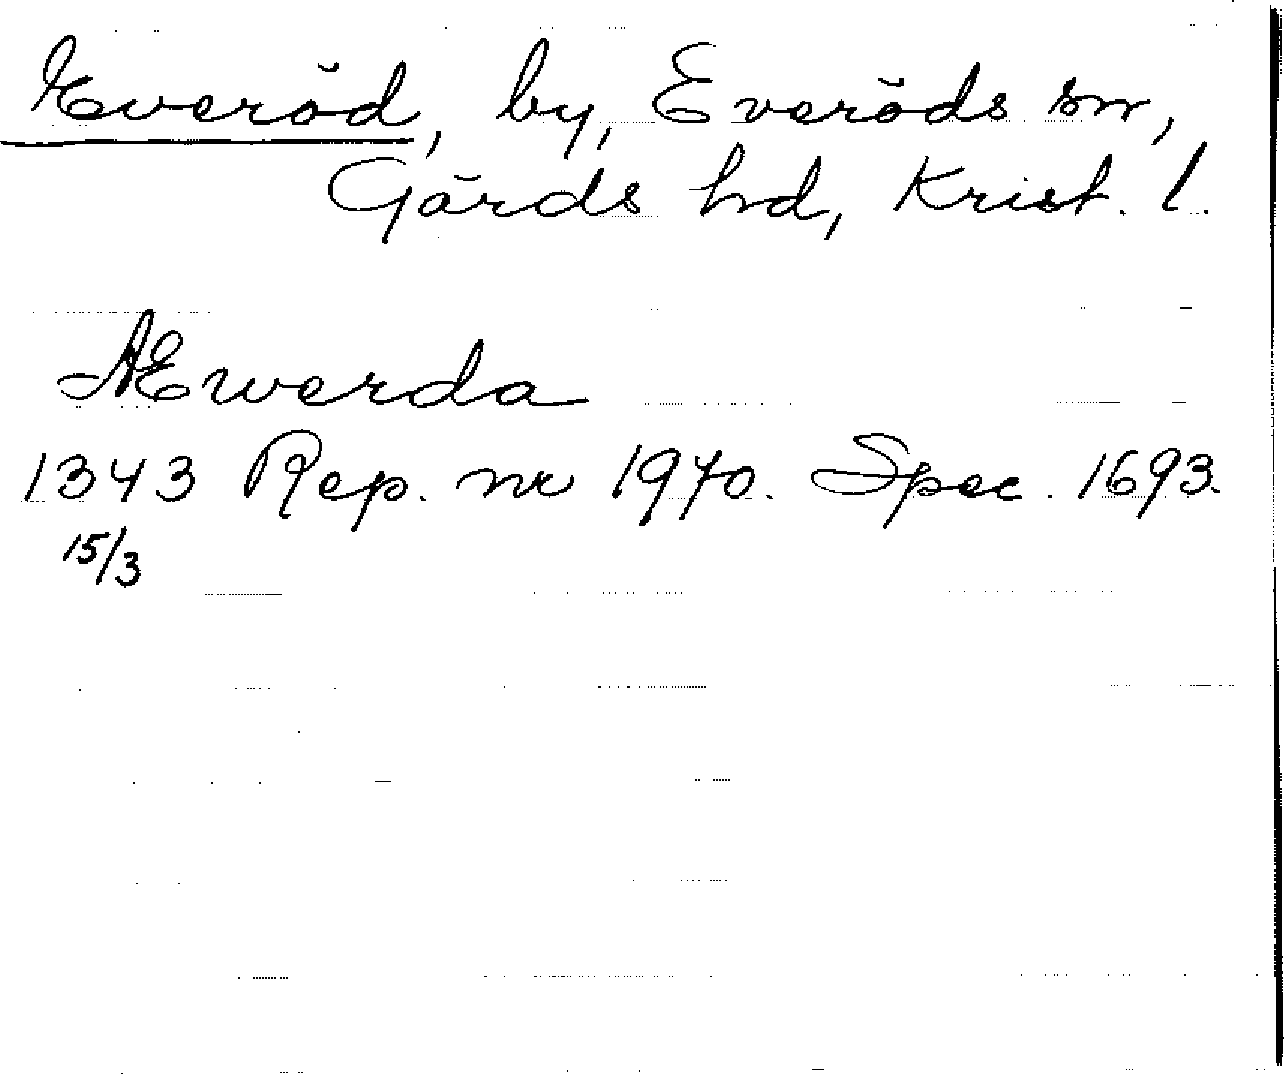 Everöd, by, Everöds sn,
Gärds hd, Krist. l.
AEwerda
1343 Rep. nr 1970. Spec. 1693.
15/3